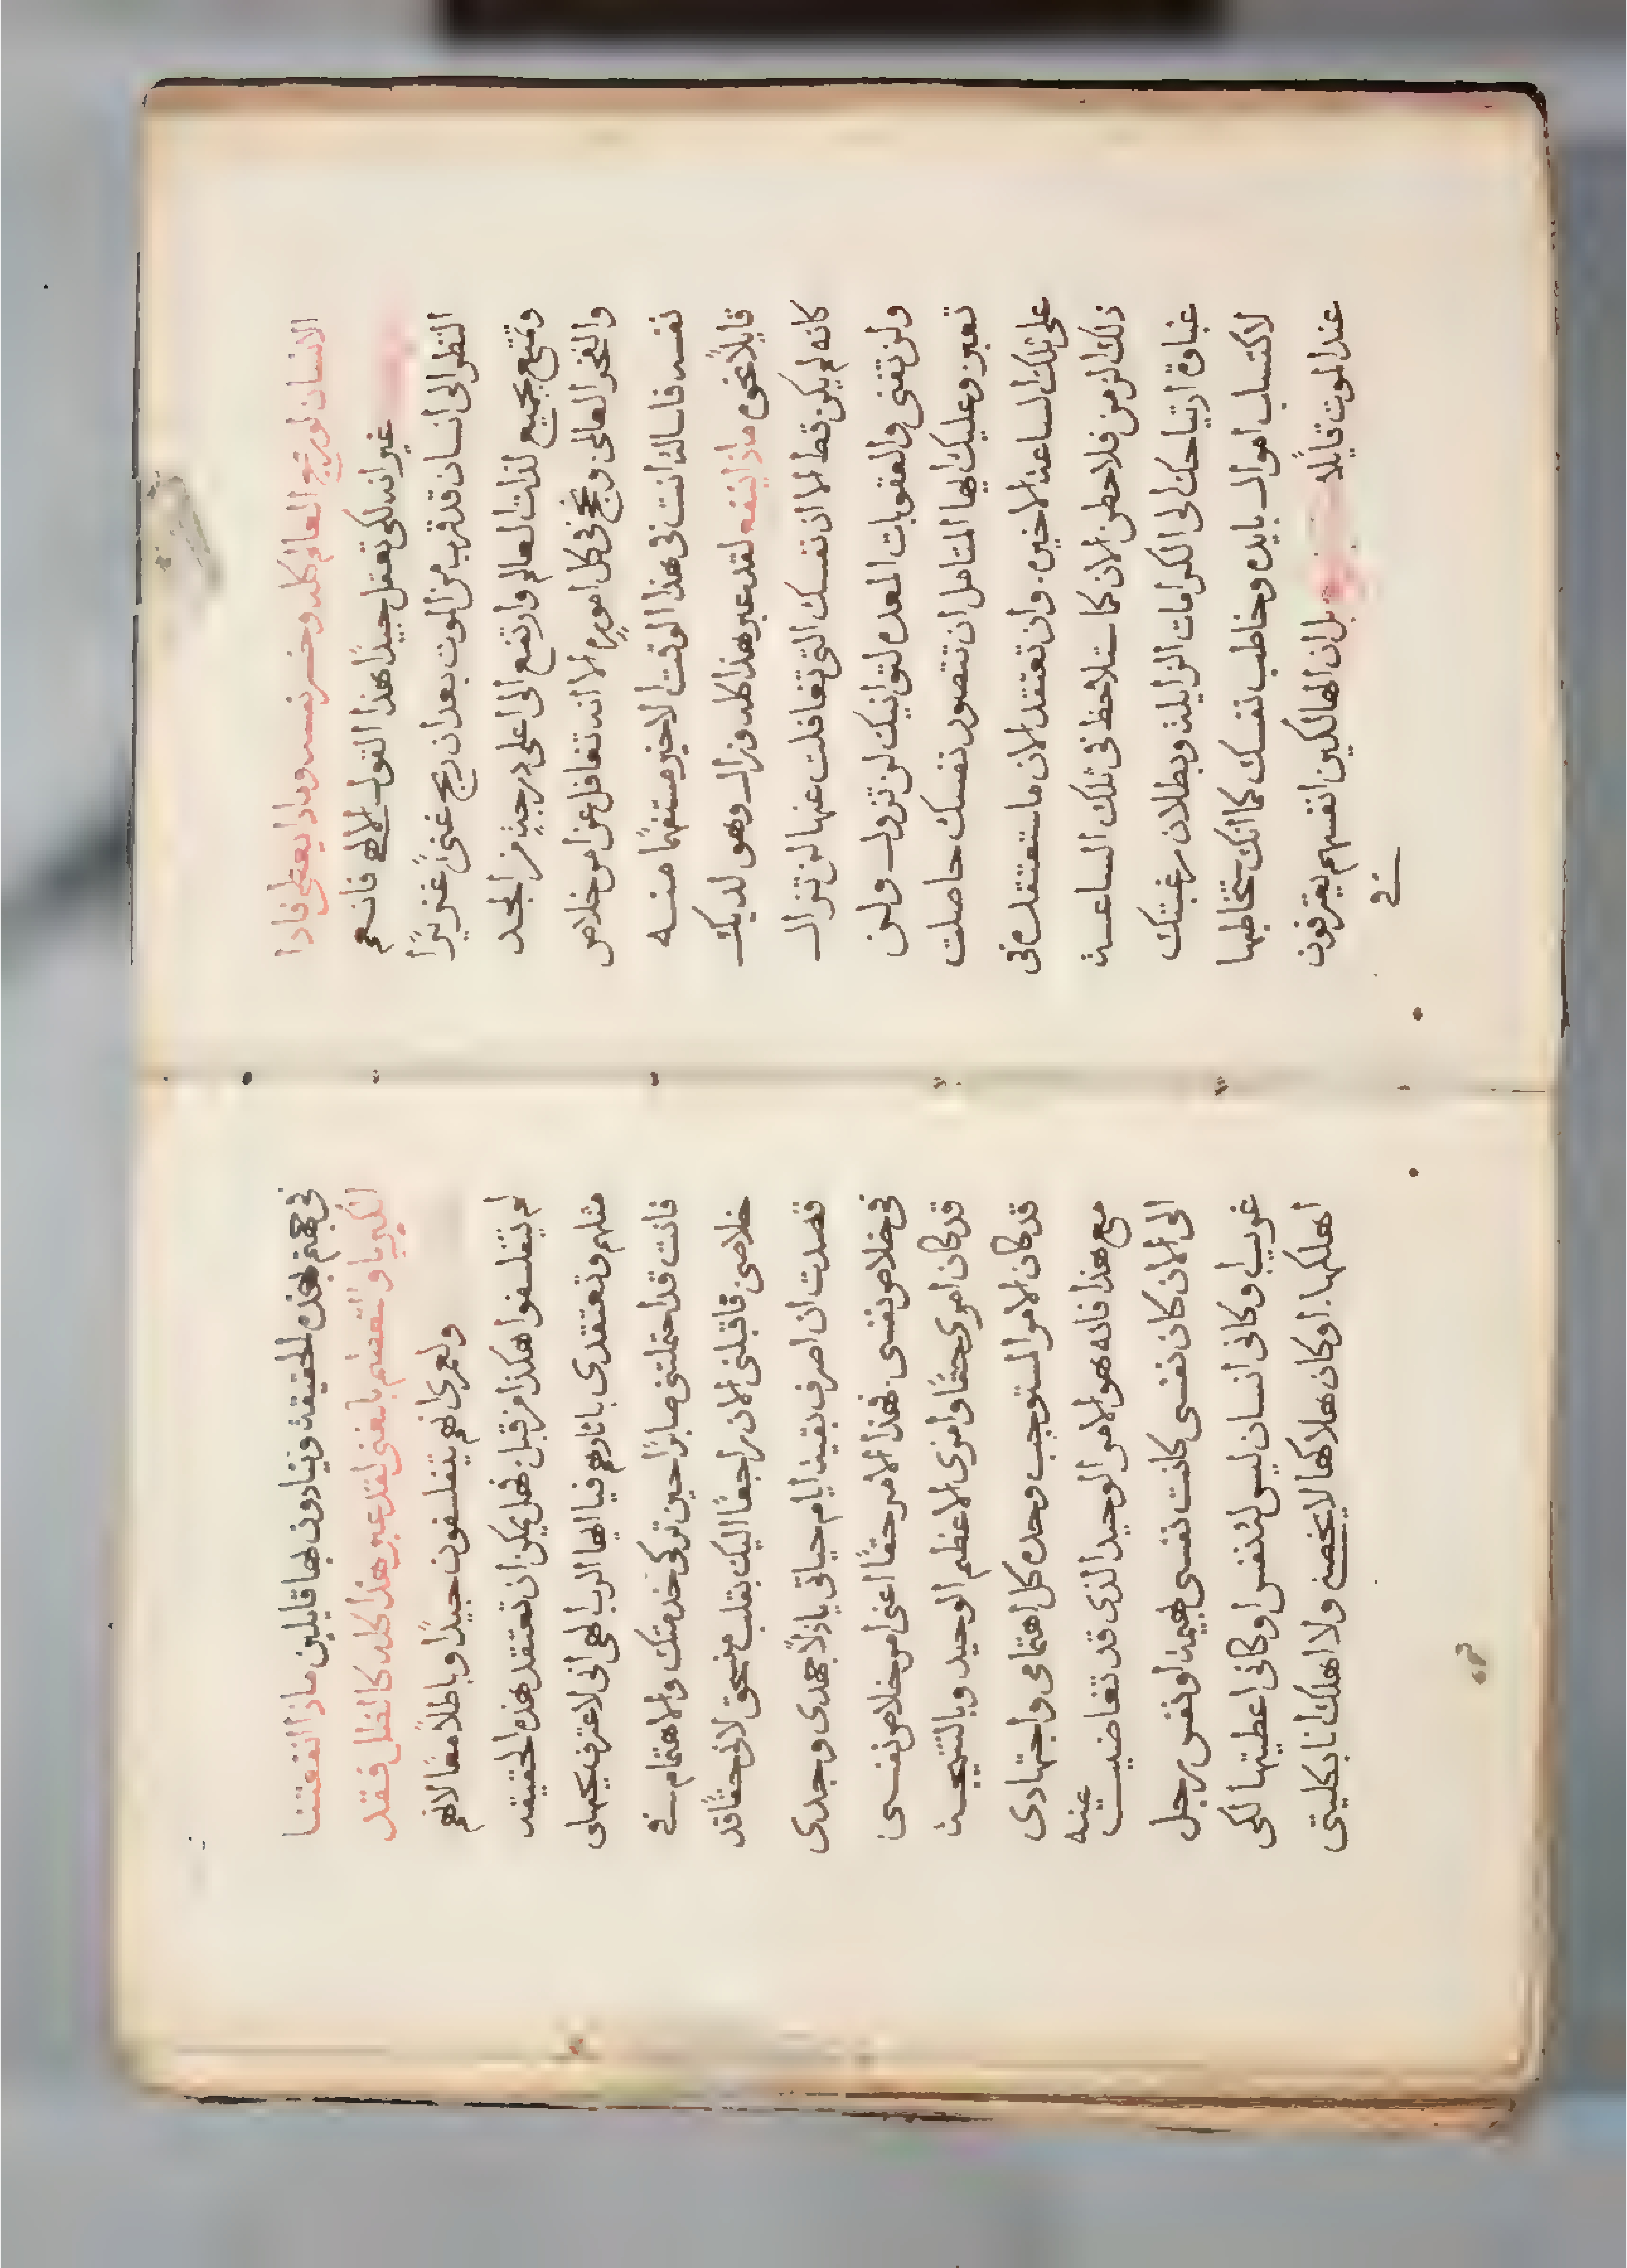 الانسان لو ربح العالم كله وخسر نفسه وماذا يعطي فادا
غير انه لكي تعقل جيدًا هذا القول الالهي فانعم
النظر الى انسان قد قرب من الموت بعد ان ربح غنىً غزيرًا
وتمتع بجميع لذات العالم وارتفع الى اعلى درجةٍ من المجد
والفخر العالمي ونجح في كل اموره الا انه تغافل عن امر خلاص
نفسه فاساله انت في هذا الوقت الاخير مستفهمًا منه
قايلاً نحوه ماذا ينفعه لقد عبر هذا كله وزال وهو لديك
كانه لم يكن قط الا ان نفسك التي تغافلت عنها لن تزال
ولن تفنى والعقوبات المعده لتوانيك لن تزول ولن
تعبر وعليك ايها المتامل ان تتصور نفسك حاصلت
على تلك الساعة الاخيره. وان تعتقد الان ما ستعتقده في
ذلك الزمن فلاحظن الان كما ستلاحظ في تلك الساعة
غباوة ارتياحك الى الكرامات الزايلة وبطلان رغبتك
لاكتساب اموال بايده وخاطب نفسك كما انك ستخاطبها
عند الموت قايًلا بل ان الهالكين انفسهم يعترفون
في
في جهنم بهذه الحقيقة وينادون بها قايلين ماذا انفعتنا
الكبريا والتعظم بالغنى لقد عبر هذا كله كالظل فقد
ولعمري انهم يتفلسفون جيدًا وباطلاً معًا لانهم
لم يتفلسفوا هكذا من قبل. فهل يمكن ان تعتقد هذه الحقيقه
مثلهم وتعتقدي باثارهم فيا ايها الرب الهي اني لاعترف بجهلي
فانت قد احتملتني صابرًا حين تركي خدمتك والاهتمام في
خلاصي فاقبلني الان راجعًا اليك بقلب منسحق لاني حقًا قد
قصدت ان اصرف بقية ايام حياتي باذلاً جهدي وجدي
في خلاص نفسي. فهذا الامر حقًا اعني امر خلاص نفسي
قد كان امري حقًا وامري الاعظم الوحيد وبالنتيجة
قد كان الامر المستوجب وحده كل اهتمامي واجتهادي
مع هذا فانه هو الامر الوحيد الذي قد تغاضيت عنه
الى الان كان نفسي كانت نفس بهيمة او نفس رجل
غريب او كاني انسان ليس له نفس او كاني اعطيتها لكي
اهلكها. او كان هلاكها لا يخصني ولا اهلك انا بكليتي